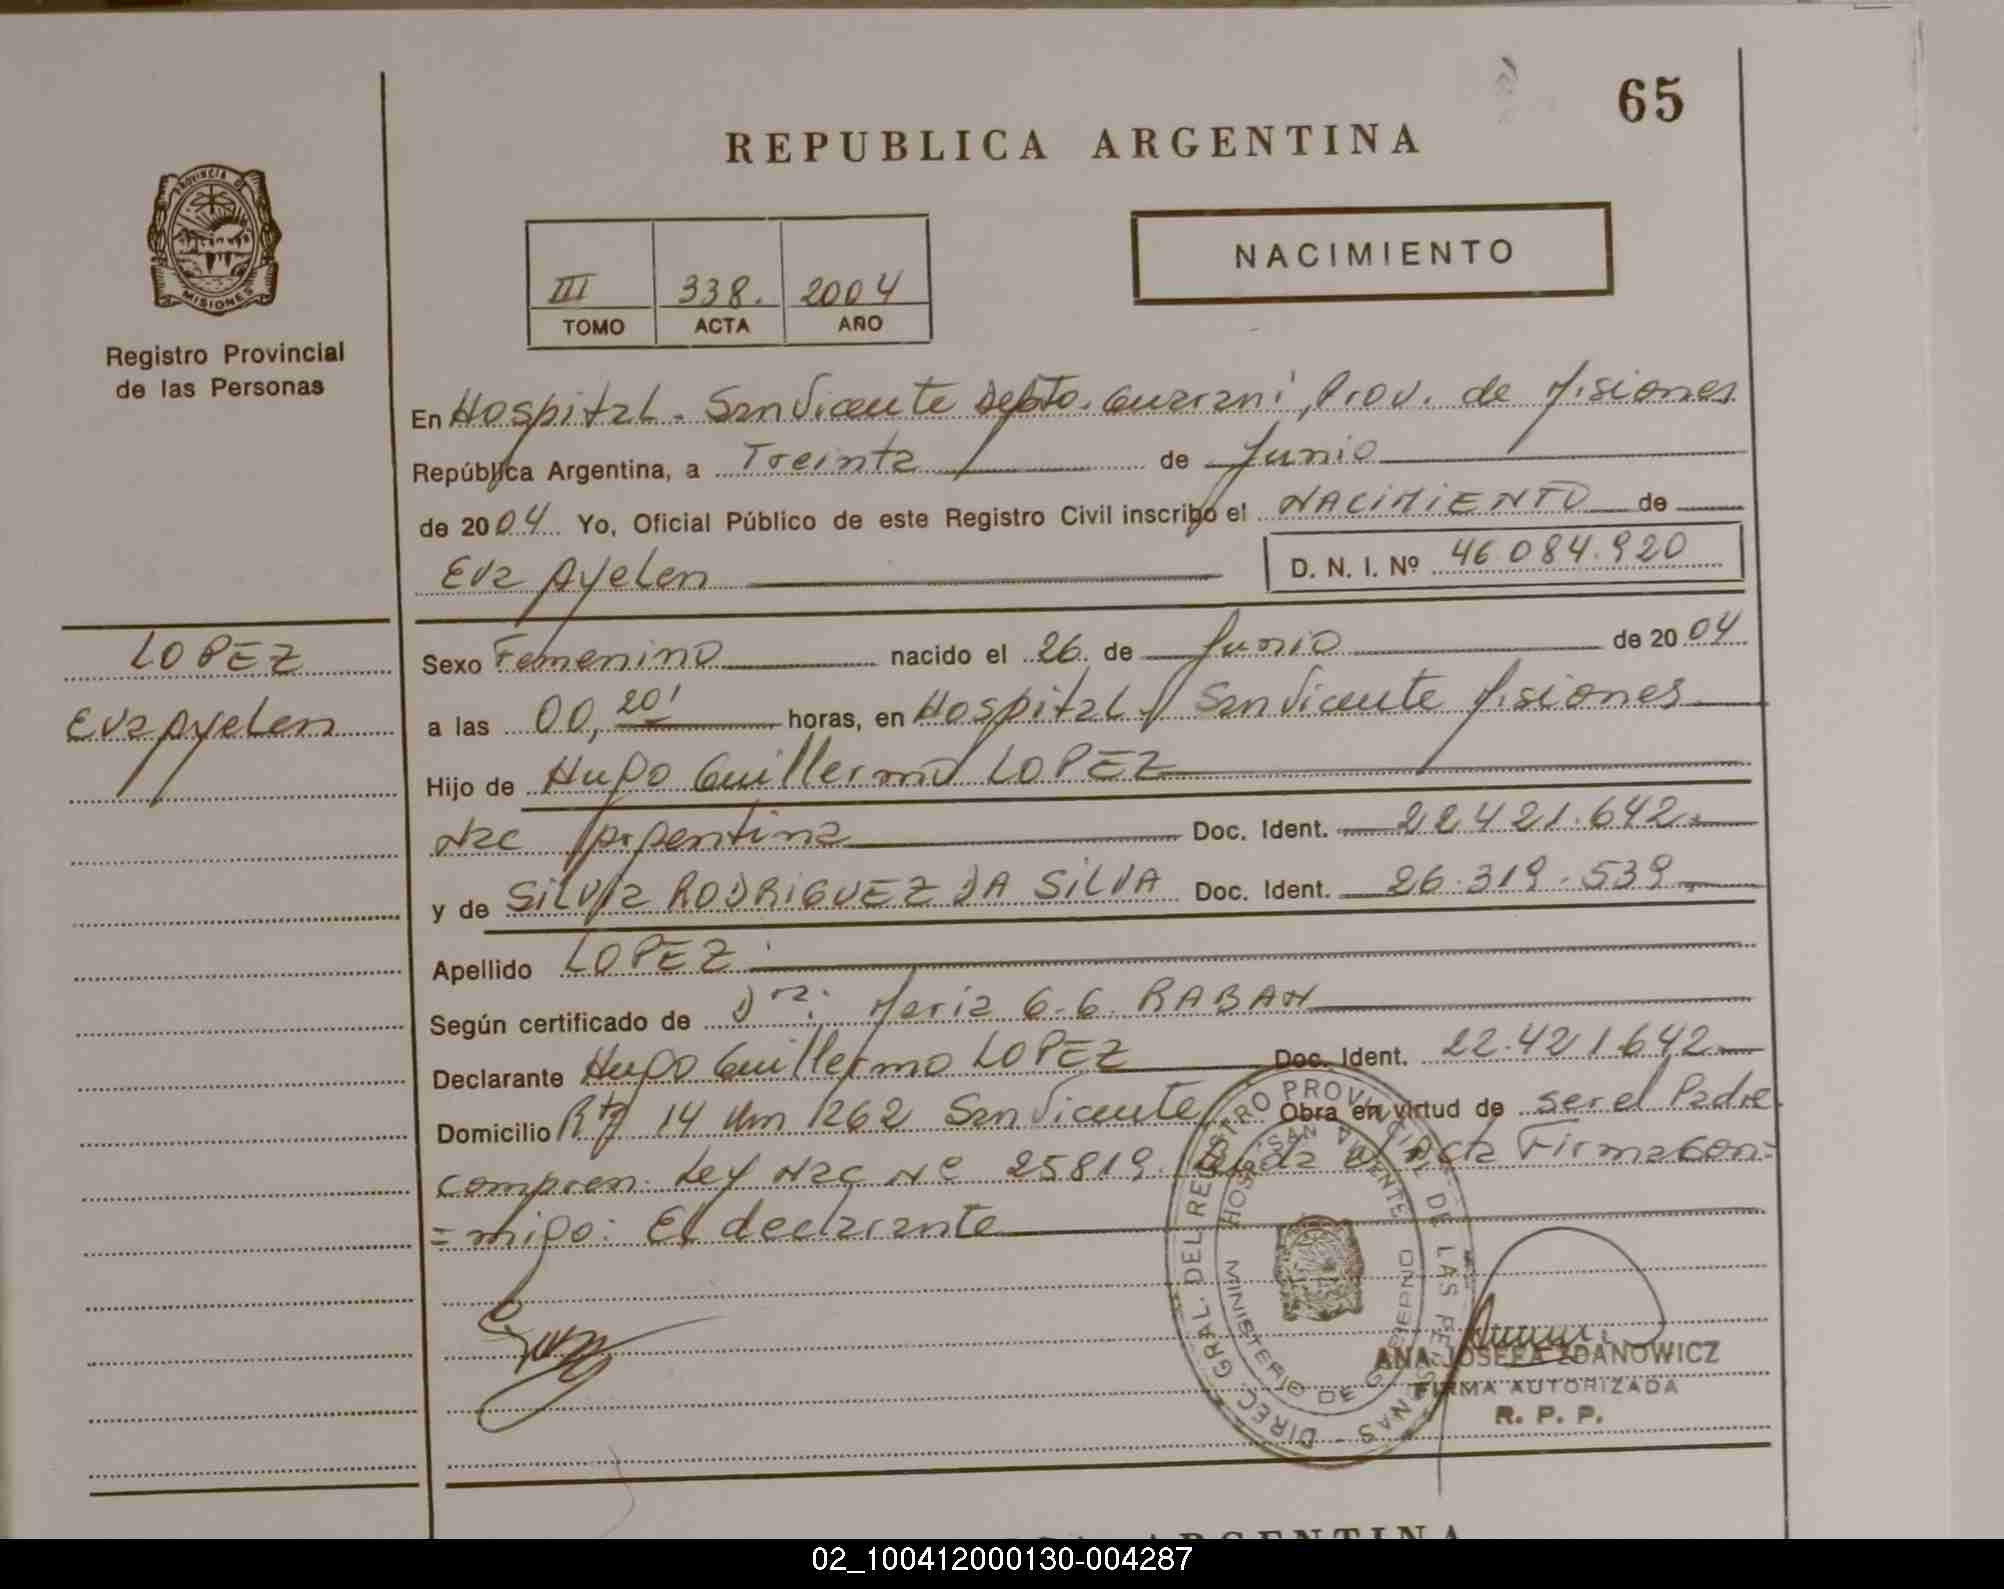 65
REPUBLICA ARGENTINA
PROVINCIA DE
MISIONES
Registro Provincial
de las Personas
III 338. 2004
TOMO ACTA AÑO
NACIMIENTO
En Hospital - San Vicente Depto. Guarani, Prov. de Misiones
República Argentina, a Treinta de Junio
de 2004 Yo, Oficial Público de este Registro Civil inscribo el NACIMIENTO de
Eva Ayelen D. N. I. Nº 46 084.920
LOPEZ
Eva Ayelen
Sexo Femenino nacido el 26 de Junio de 2004
a las 00, 20' horas, en Hospital - San Vicente Misiones
Hijo de Hugo Guillermo LOPEZ
Nac Argentina Doc. Ident. 22.421.642
y de Silvia RODRIGUEZ DA SILVA Doc. Ident. 26.319.539
Apellido LOPEZ
Según certificado de Dra: Maria G. G. RABAN
Declarante Hugo Guillermo LOPEZ Doc. Ident. 22.421.642
Domicilio Rta 14 Km 1262 San Vicente Obra en virtud de ser el Padre
compren. Ley Nac Nº 25819. Leida el Acta Firma con=
=migo: El declarante
DIREC. GRAL. DEL REGISTRO PROVINCIAL DE LAS PERSONAS -
HOSP. SAN VICENTE
MINISTERIO DE GOBIERNO
ANA JOSEFA ZDANOWICZ
FIRMA AUTORIZADA
R. P. P.
ARGENTINA
02_100412000130-004287